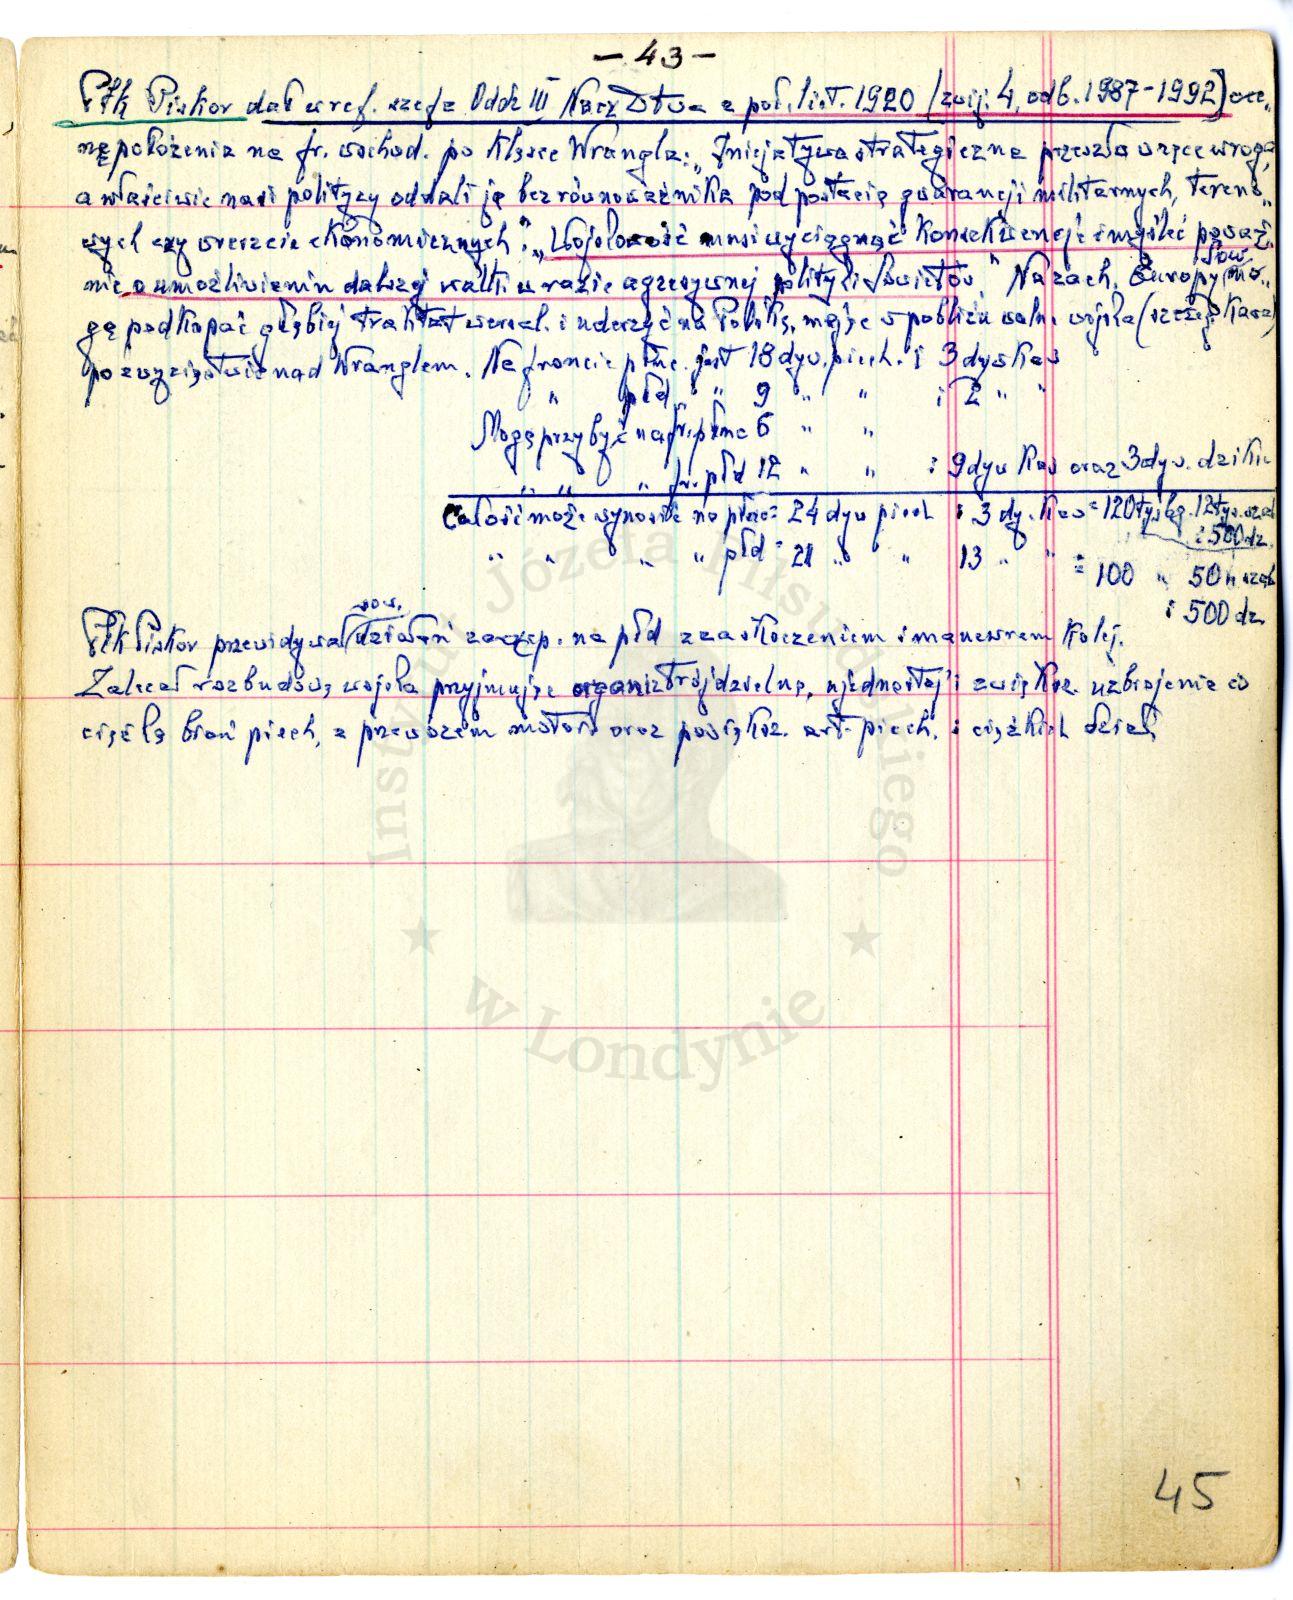 — 43 —
Płk Piskor dał w ref. szefa Oddz III Nacz Dtwa z poł. list. 1920 (zwij. 4, odb. 1987-1992) oce„
nę położenia na fr. wschod. po klęsce Wrangla: „Inicjatywa strategiczna przeszła w ręce wroga,
a właściwie nasi politycy oddali ją bez równoważnika pod postacią gwarancji militarnych, tereno„
wych czy wreszcie ekonomicznych". „Wojskowość musi wyciągnąć konsekwencje i myśleć poważ„
nie o umożliwieniu dalszej walki w razie agresywnej polityki Sowietów." Na zach. Europy sow. mo„
gą podkopać głębiej traktat wersal. i uderzyć na Polskę, mając w pobliżu woln. wojska (szczeg. kawa)
po zwycięstwie nad Wranglem. Na froncie płnc. jest 18 dyw. piech. i 3 dyw kaw
" płd " " 9 " " i 2 " "
Mogą przybyć na fr. płnc 6 " "
" " " fr. płd 12 " " i 9 dyw kaw oraz 3 dyw. dzikie
Całość może wynosić na płnc = 24 dyw piech i 3 dy. kaw = 120 tys bag. 12 tys. szab
i 500 dz.
" " " " płd = 21 " " 13 " " = 100 " 50 " szab
i 500 dz
Płk Piskor przewidywał sow. działań zaczep. na płd z zaskoczeniem i manewrem kolej.
Zalecał rozbudowę wojska przyjmując organiz trójdzielną, ujednostaj i zwiększ. uzbrojenie co
ciężką broń piech, z przewozem motor. oraz powiększ. art. piech. i ciężkich dział.
45
Instytut Józefa Piłsudskiego
w Londynie